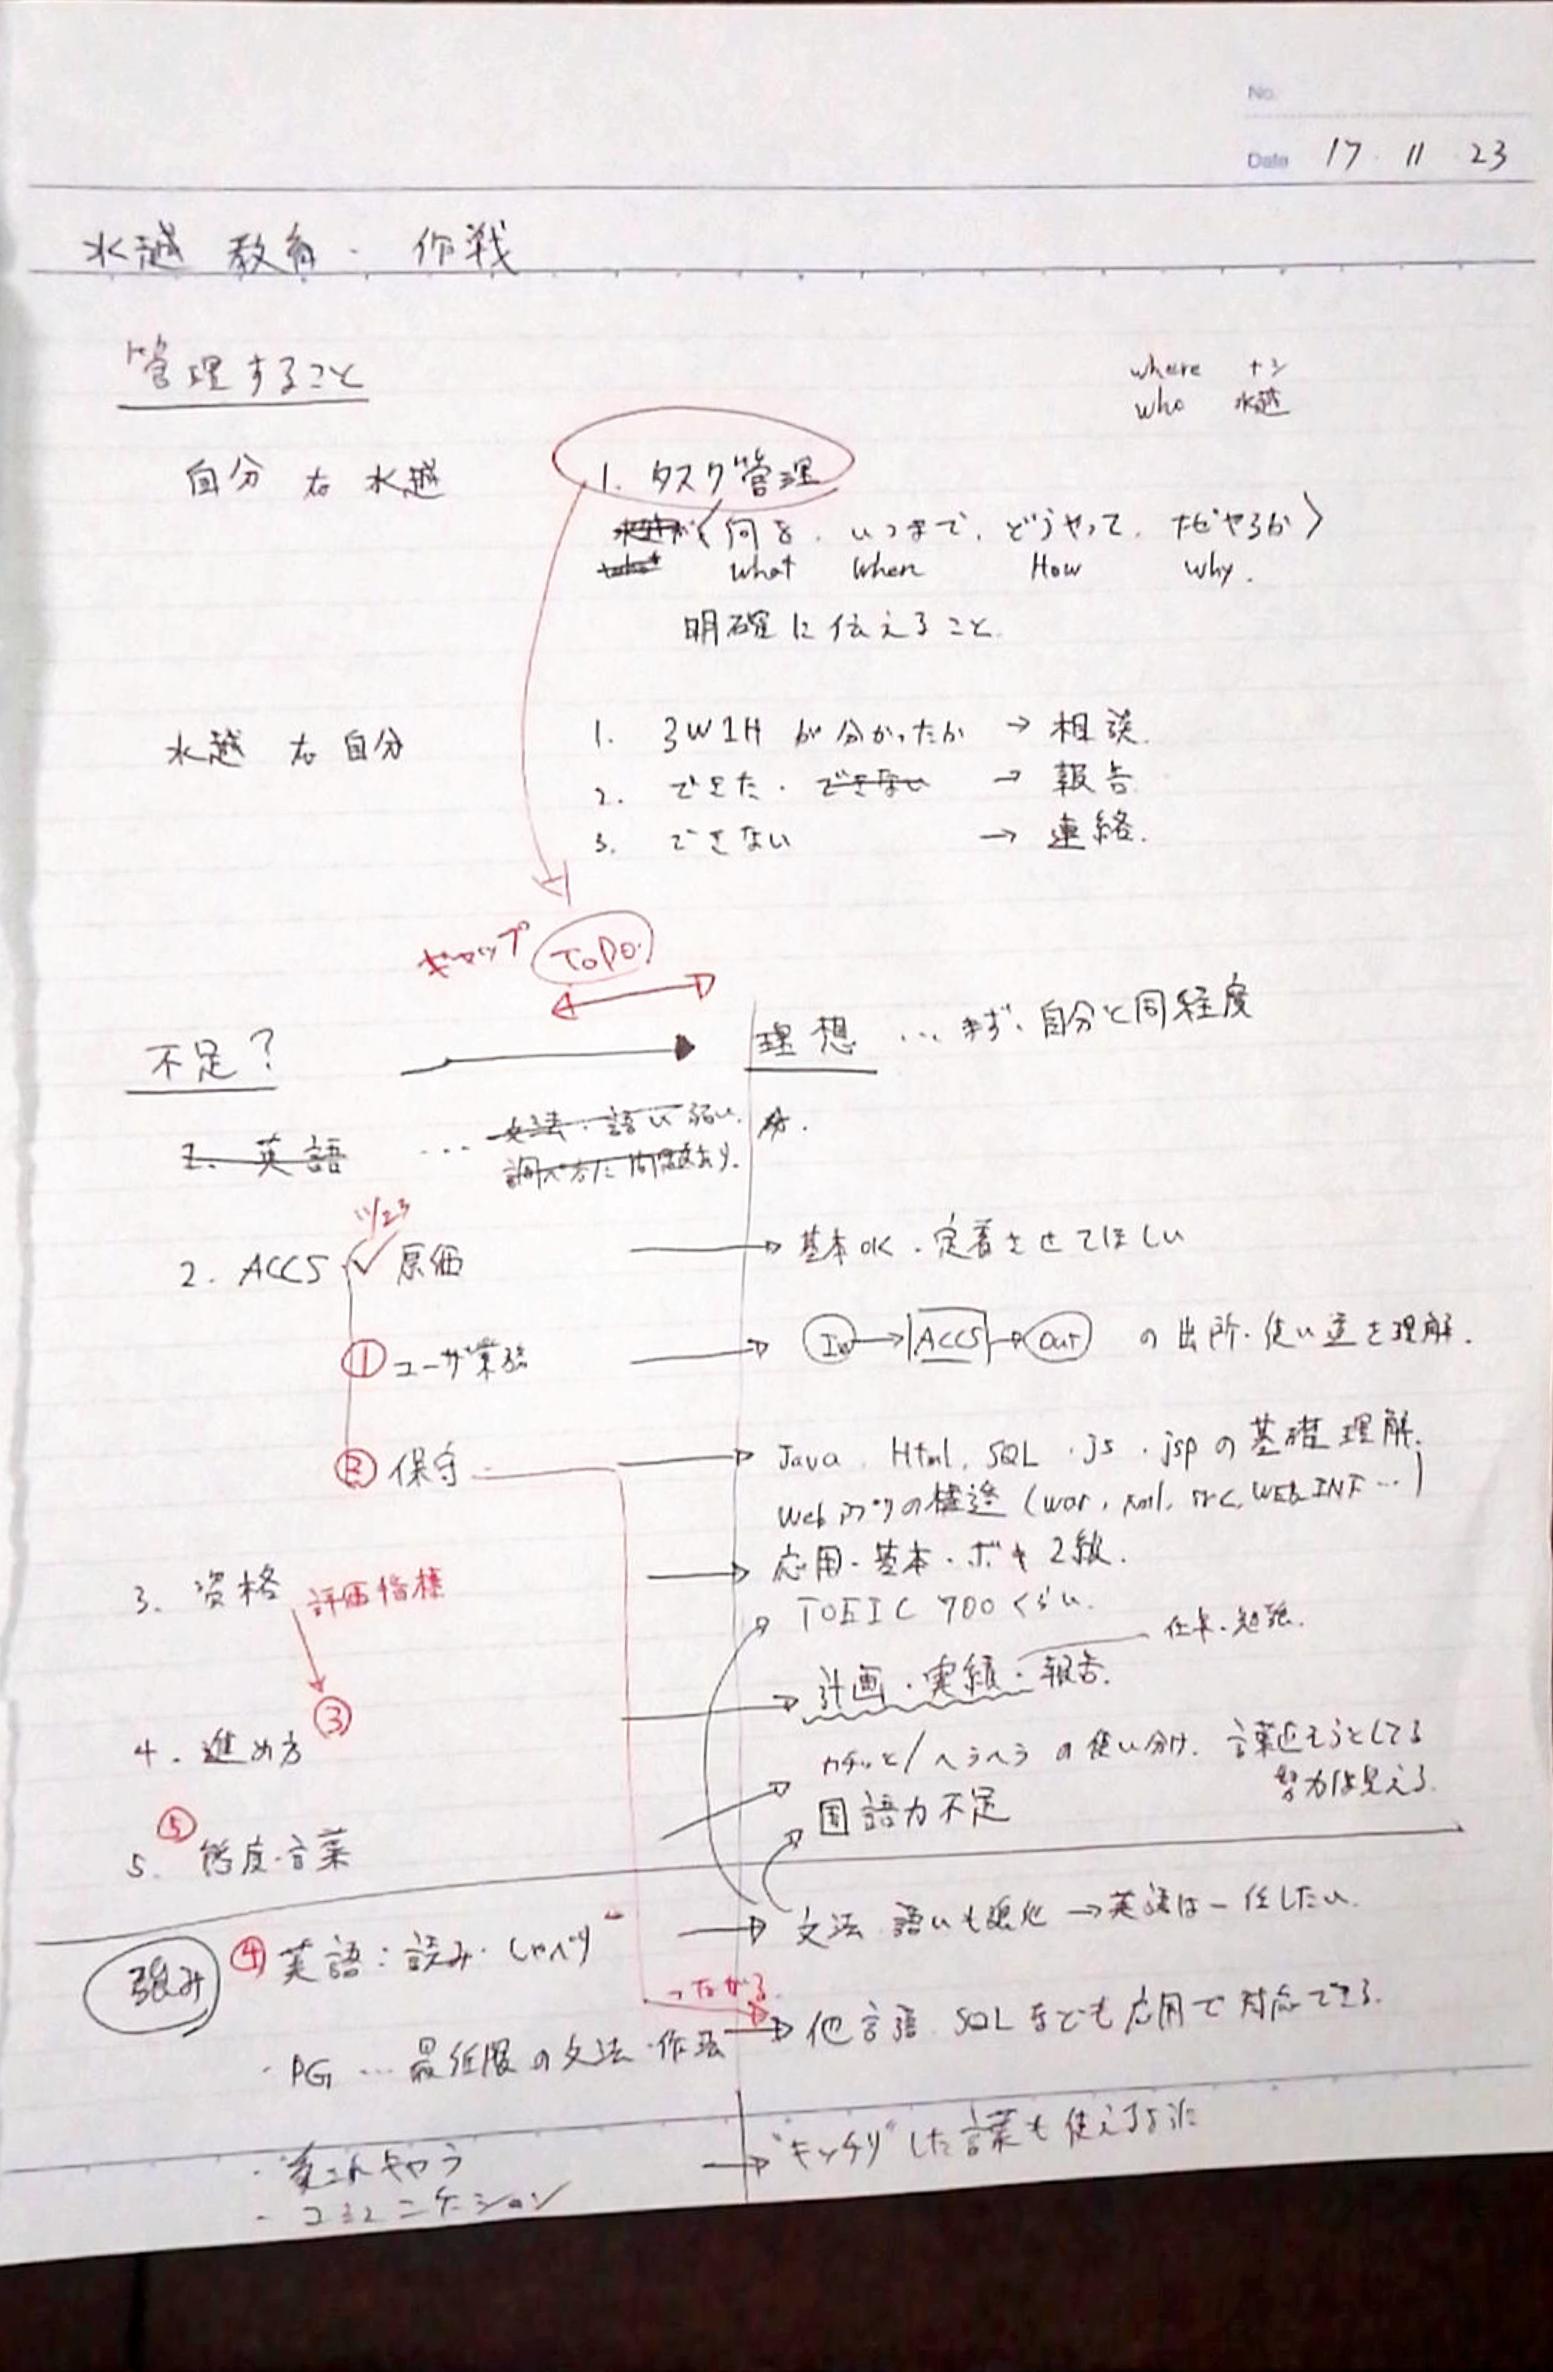 No.
Date 17 11 23
水越 教育・作戦
管理すること
where ナシ
who 水越
自分 → 水越
1. タスク管理
〈何を、いつまで、どうやって、なぜやるか〉
what when How why.
明確に伝えること
水越 → 自分
1. 3W1H が分かったか → 相談.
2. できた・できない → 報告
3. できない → 連絡.
ギャップ ToDo!
不足? → 理想 … まず、自分と同程度
1. 英語 … 文法・語い弱い.
調べ方に問題あり.
11/23
2. ACCS ✓ 原価 → 基本OK. 定着させてほしい
① ユーザ業務 → In → ACCS → Out の出所・使い道を理解.
② 保守 → Java. Html. SQL .js .jsp の基礎理解.
Webアプリの構造 (war, xml, src, WEB INF …)
3. 資格 評価指標 → 応用・基本・ボキ2級.
TOEIC 700くらい.
仕事・勉強.
③ → 計画・実績・報告.
4. 進め方
カチッと/ヘラヘラ の使い分け. 言葉近そうとしてる
努力は見える.
国語力不足
⑤
5. 態度・言葉
強み ④ 英語:読み・しゃべり → 文法 語いも強化 → 英語は一任したい.
つながる.
・PG … 最低限の文法・作法 → 他言語 SQLなども応用で対応できる.
→ "キッチリ"した言葉も使えるように
・コミュニケーション